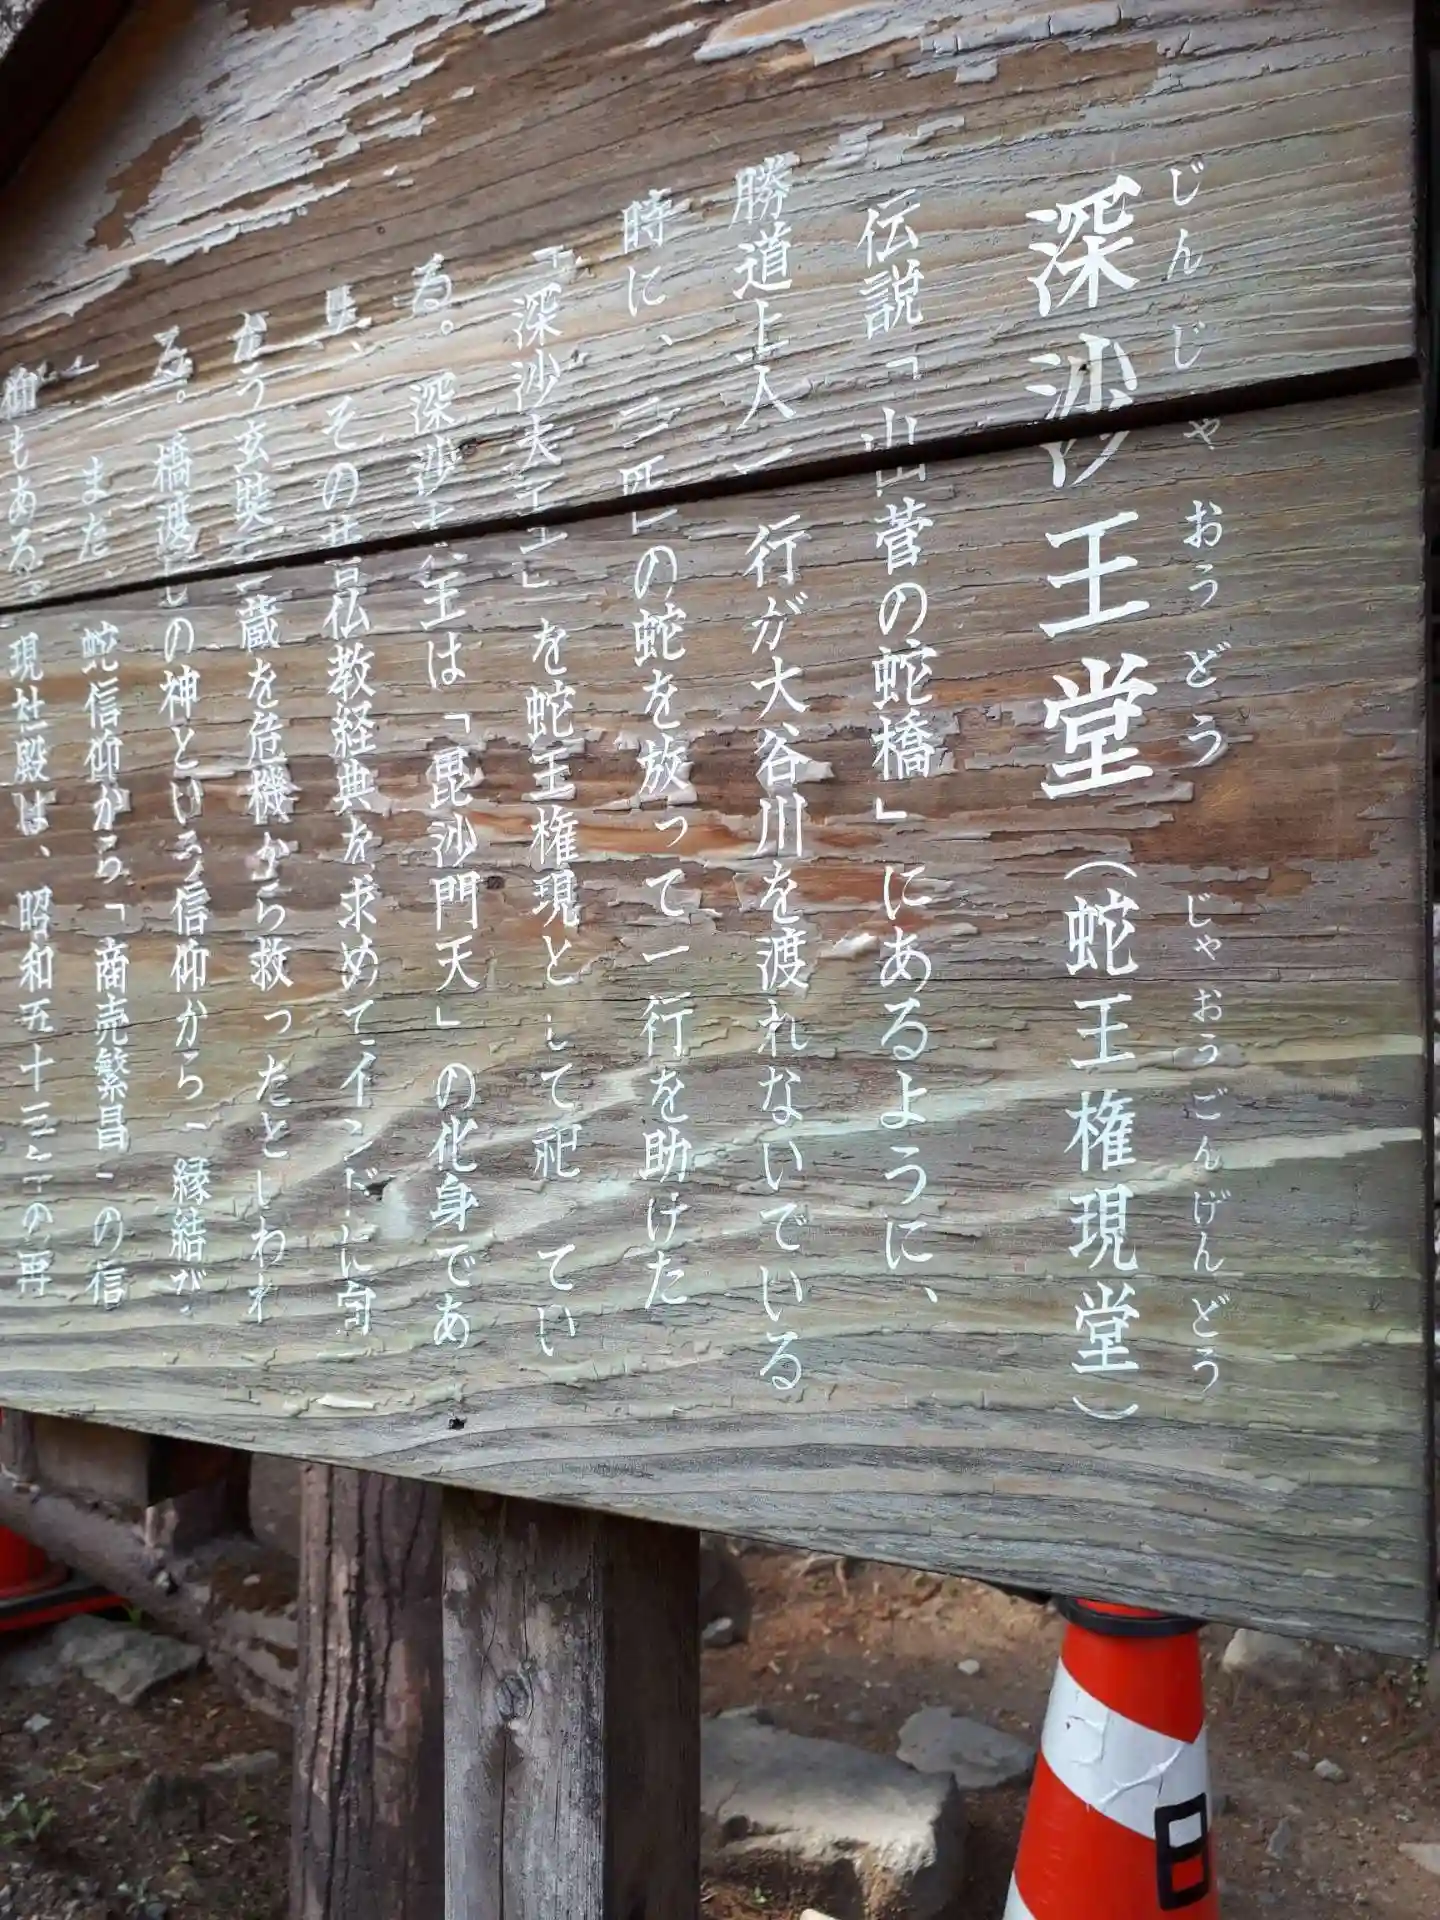 じんじゃおうどう じゃおうごんげんどう
深沙王堂（蛇王権現堂）
伝説「山菅の蛇橋」にあるように、
勝道上人一行が大谷川を渡れないでいる
時に、二匹の蛇を放って一行を助けた
「深沙大王」を蛇王権現として祀ってい
る。深沙大王は「毘沙門天」の化身であ
り、その昔仏教経典を求めてインドに向
かう玄奘三蔵を危機から救ったといわれ
る。橋渡しの神という信仰から「縁結び」
また、蛇信仰から「商売繁昌」の信
仰もある。現社殿は、昭和五十三年の再
日